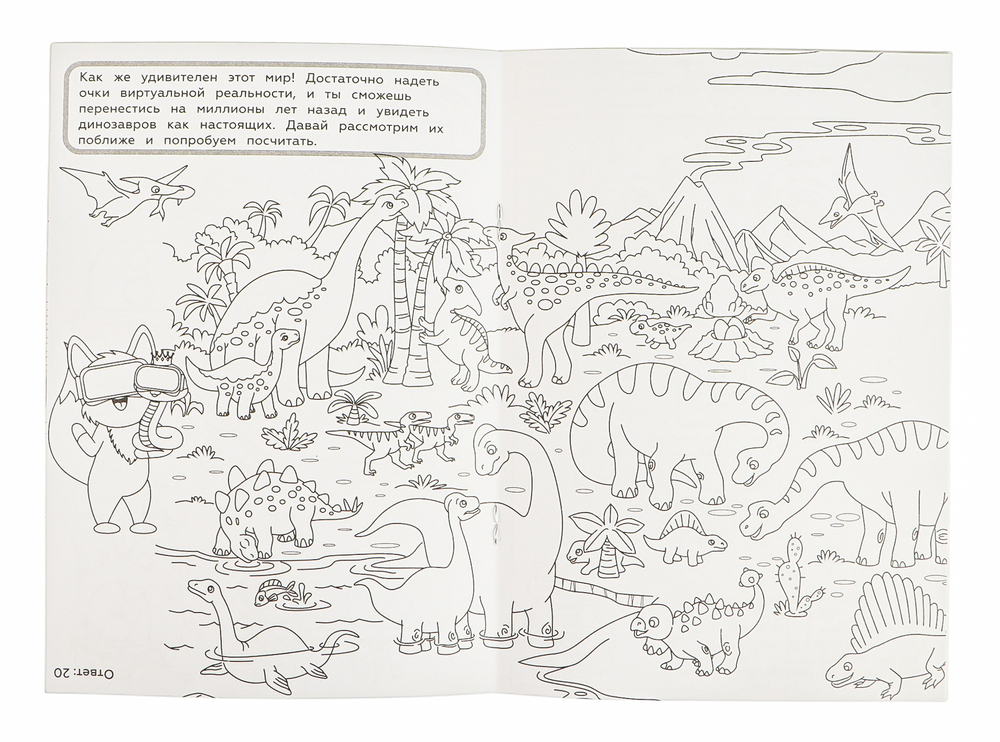 Как же удивителен этот мир! Достаточно надеть
очки виртуальной реальности, и ты сможешь
перенестись на миллионы лет назад и увидеть
динозавров как настоящих. Давай рассмотрим их
поближе и попробуем посчитать.
Ответ: 20